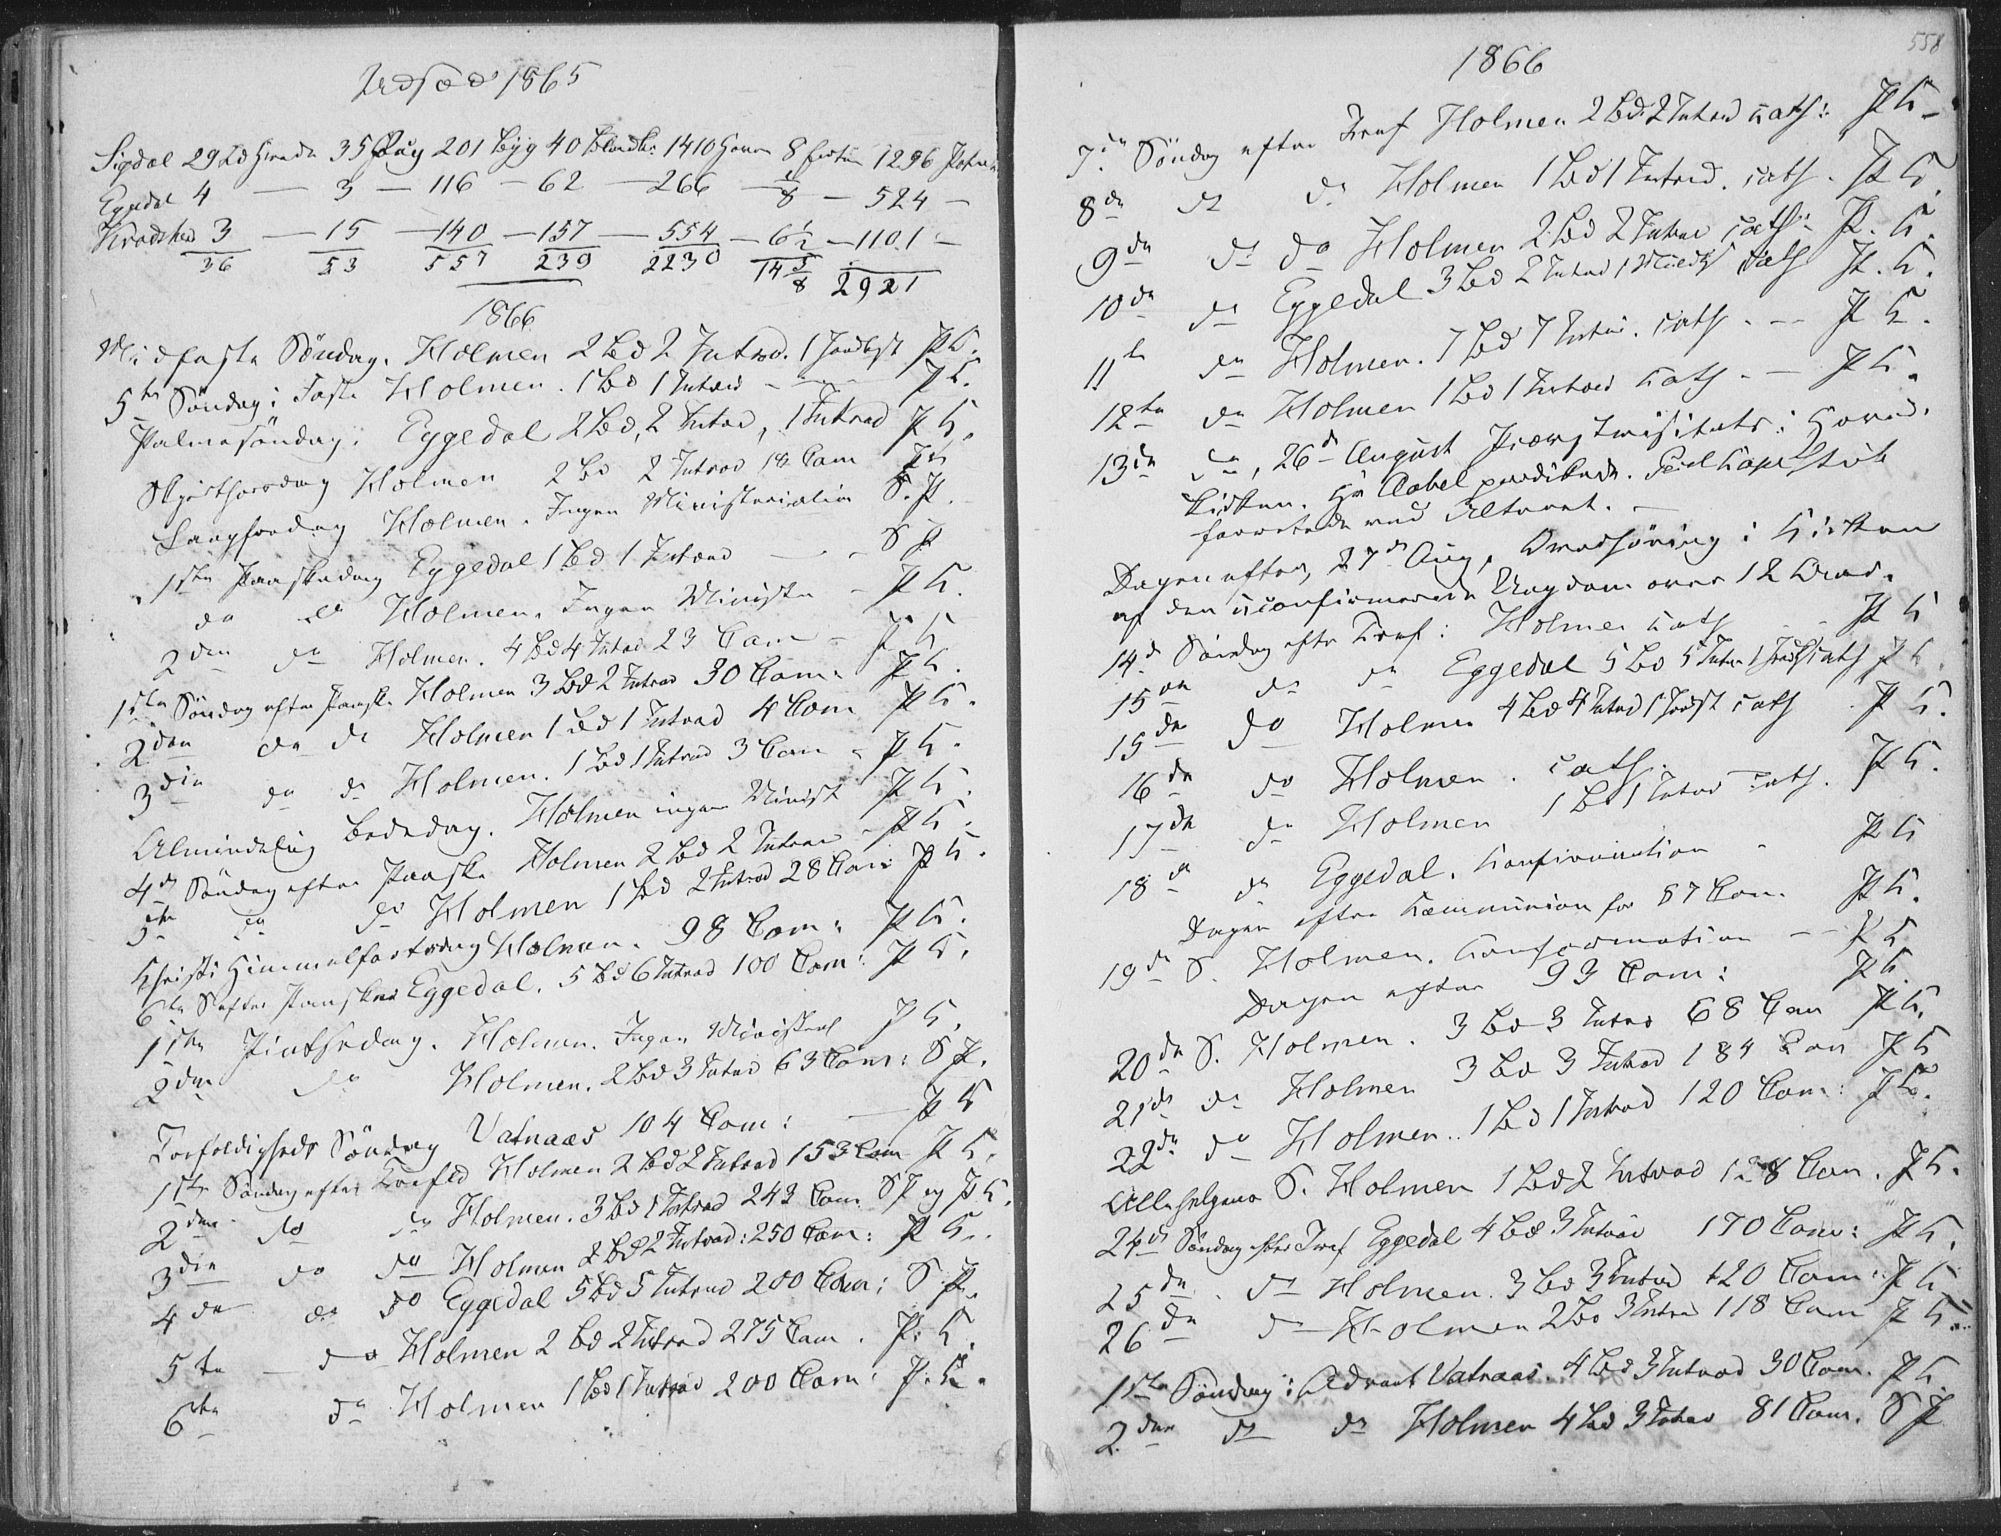 Udsæd 1865
Sigdal 29 td Hvede 35 Rug 201 Byg 40 Blandk: 1410 Havre 8 Erter 1296 Poteter
Eggedal 4 — 3 — 116 — 62 — 266 — 1/8 — 524 —
Kradsherd 3 — 15 — 140 — 137 — 554 — 6 1/2 — 1101 —
36 53 557 239 2230 14 5/8 2921
1866
Midfaste Søndag. Holmen 2 Bd 2 Introd. 1 Jordfst P K.
5te Søndag i Faste Holmen. 1 Bd 1 Introd - - - P K.
Palmesøndag. Eggedal 2 Bd, 2 Introd, 1 Introd P K.
Skjærthorsdag Holmen 2 Bd 2 Introd 18 Com P K
Langfredag Holmen. Ingen Ministerialia S. P.
1ste Paaskedag Eggedal 1 Bd 1 Introd — - S P
do do Holmen. Ingen Ministr - P K.
2den do Holmen. 4 Bd 4 Introd 23 Com - P K
1ste Søndag efter Paaske Holmen 3 Bd 2 Introd 30 Com: P K.
2den do do Holmen 1 Bd 1 Introd 4 Com P K.
3die do do Holmen. 1 Bd 1 Introd 3 Com - P K.
Almindelig Bededag. Holmen ingen Minist P K.
4de Søndag efter Paaske Holmen 2 Bd 2 Introd - P K.
5te do do Holmen 1 Bd 2 Introd 28 Com: P K.
Christi Himmelfartsdag Holmen. 98 Com: P K.
6te S. efter Paaske Eggedal. 5 Bd 6 Introd 100 Com: P K.
1ste Pintsedag. Holmen. Ingen Ministral P K.
2den do Holmen. 2 Bd 3 Introd 63 Com: S P.
Trefoldigheds Søndag Vatnaas 104 Com: — P K
1ste Søndag efter Trefld Holmen 2 Bd 2 Introd 153 Com P K.
2den do do Holmen. 3 Bd 1 Introd 243 Com. S P og P K.
3die do do Holmen 2 Bd 2 Introd: 250 Com: P K.
4de do do Eggedal 5 Bd 5 Introd 200 Com: S P.
5te — do Holmen 2 Bd 2 Introd 275 Com. P. K.
6te do Holmen 1 Bd 1 Introd 200 Com: P. K.
558
1866
7de Søndag efter Tref Holmen 2 Bd 2 Introd Cath: P K -
8de do do Holmen 1 Bd 1 Introd. Cath. P K.
9de do do Holmen 2 Bd 2 Introd Cath: P. K.
10de do Eggedal 3 Bd 2 Introd Cath P. K.
11te do Holmen. 7 Bd 7 Introd. Cath. - - P K.
12te do Holmen 1 Bd 1 Introd Cath. - P K.
13de do, 26de August Provstvisitats i Hoved-
kirken. Hr Aabel prædikede. Capel
forrettede ved Alteret. —
Dagen efter, 27de Aug, Overhøring i Kirken
af den uconfirmerede Ungdom over 12 Aar.
14de Søndag efter Tref: Holmen Cath - - P K
15de do do Eggedal 5 Bd 5 Introd 1 Jordfst Cath P K.
15de do Holmen 4 Bd 4 Introd 1 Jordfst Cath. P K.
16de do Holmen. Cath.
17de do Holmen 1 Bd 1 Introd Cath. P K.
18de do Eggedal. Confirmation - P K
Dagen efter Communion for 87 Com. P K.
19de S. Holmen. Confirmation - - P K
Dagen efter 93 Com: P K.
20de S. Holmen. 3 Bd 3 Introd 68 Com P K.
21de do Holmen 3 Bd 3 Introd 184 Com P K
22de do Holmen.. 1 Bd 1 Introd 120 Com: P K.
Allehelgens S. Holmen 1 Bd 2 Introd 128 Com. P K.
24de Søndag efter Tref Eggedal 4 Bd 3 Introd 170 Com: P K.
25de. do Holmen. 3 Bd 3 Introd 120 Com: P K
26de do Holmen 2 Bd 3 Introd 118 Com P K.
1ste Søndag i Advent Vatnaas. 4 Bd 3 Introd 30 Com. P K
2den do do Holmen 4 Bd 3 Introd 81 Com. S P